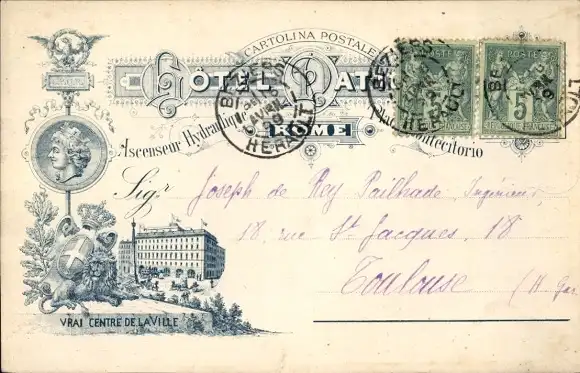 CARTOLINA POSTALE
HOTEL
ROME
Ascenseur Hydraulique
BEZIERS
AVRIL
99
HERAULT
BEZIERS
HERAULT
5
Sigr Joseph de Rey Pailhade, Ingénieur,
18, rue St Jacques, 18
Toulouse (H Gar
VRAI CENTRE DE LA VILLE